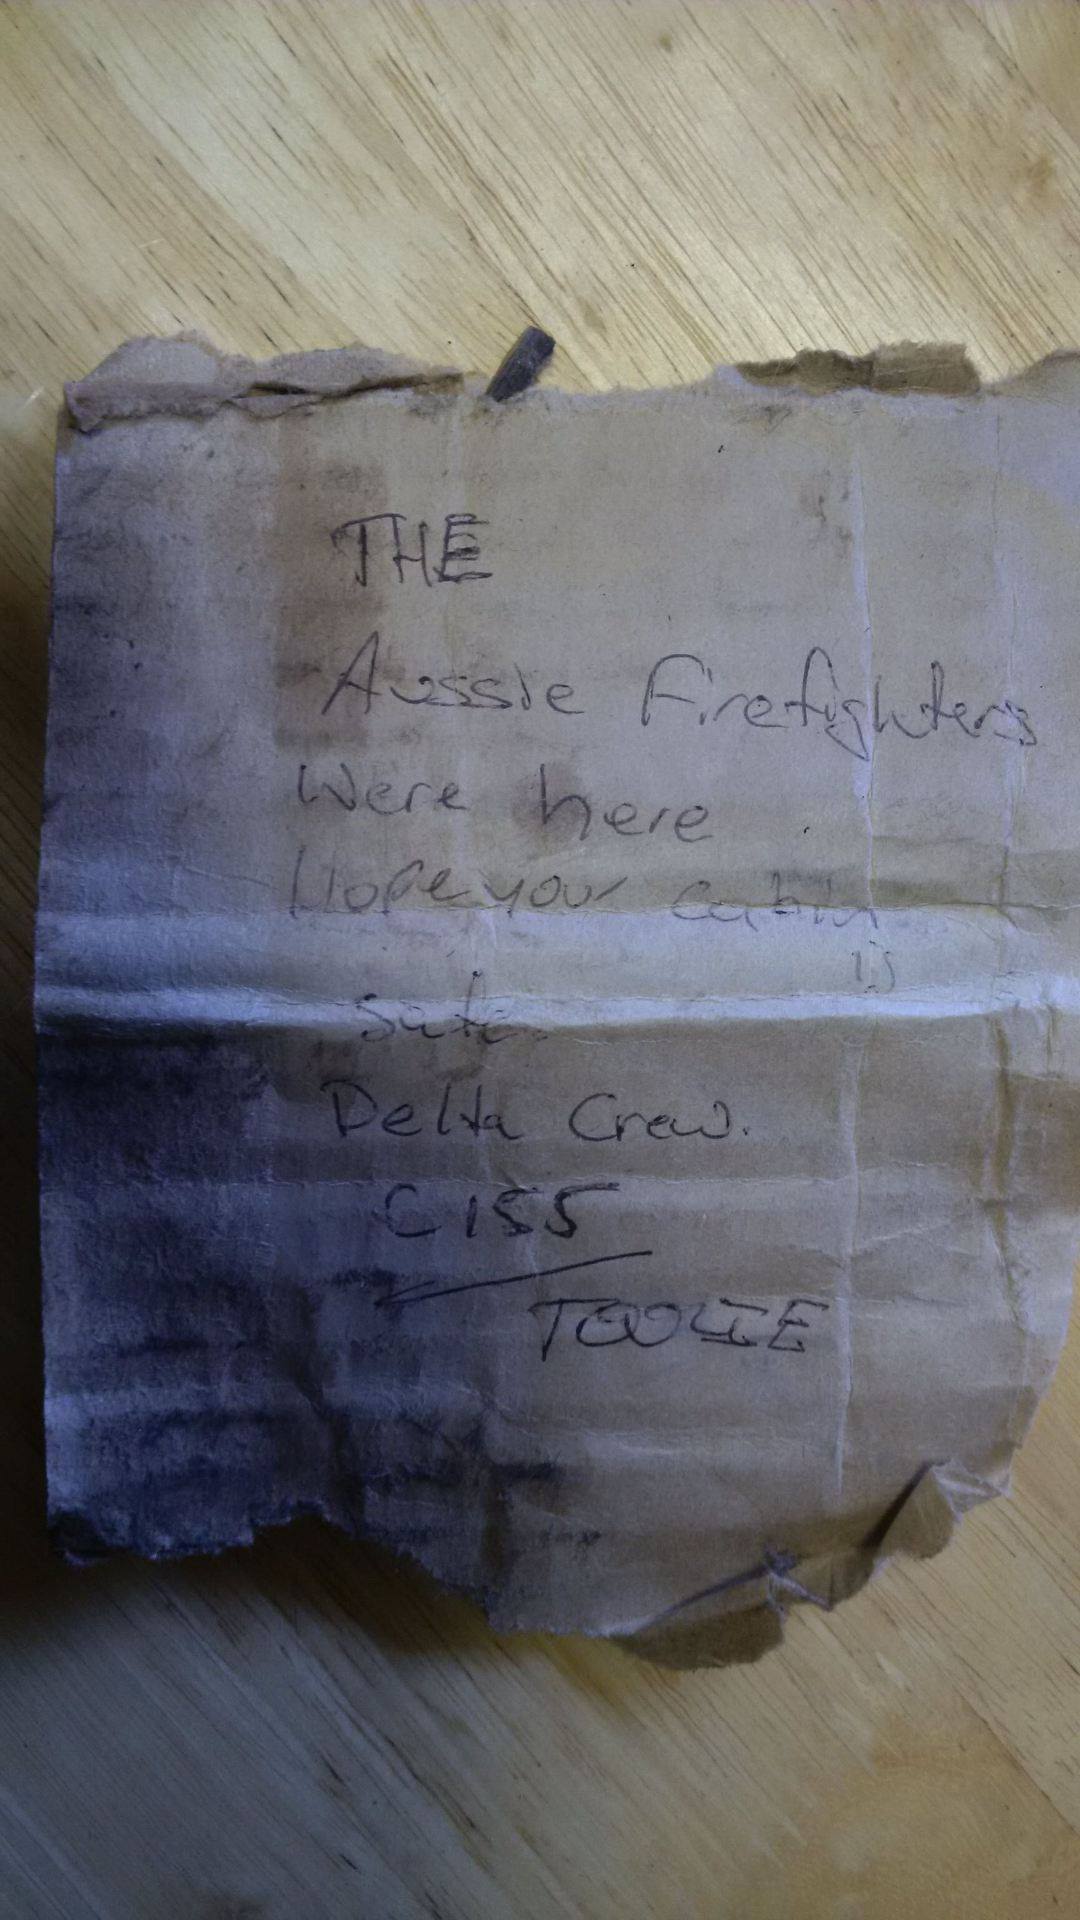 THE
Aussie Firefighters
Were here
Hope your cabin
is
safe.
Delta Crew.
C155
TOOLIE